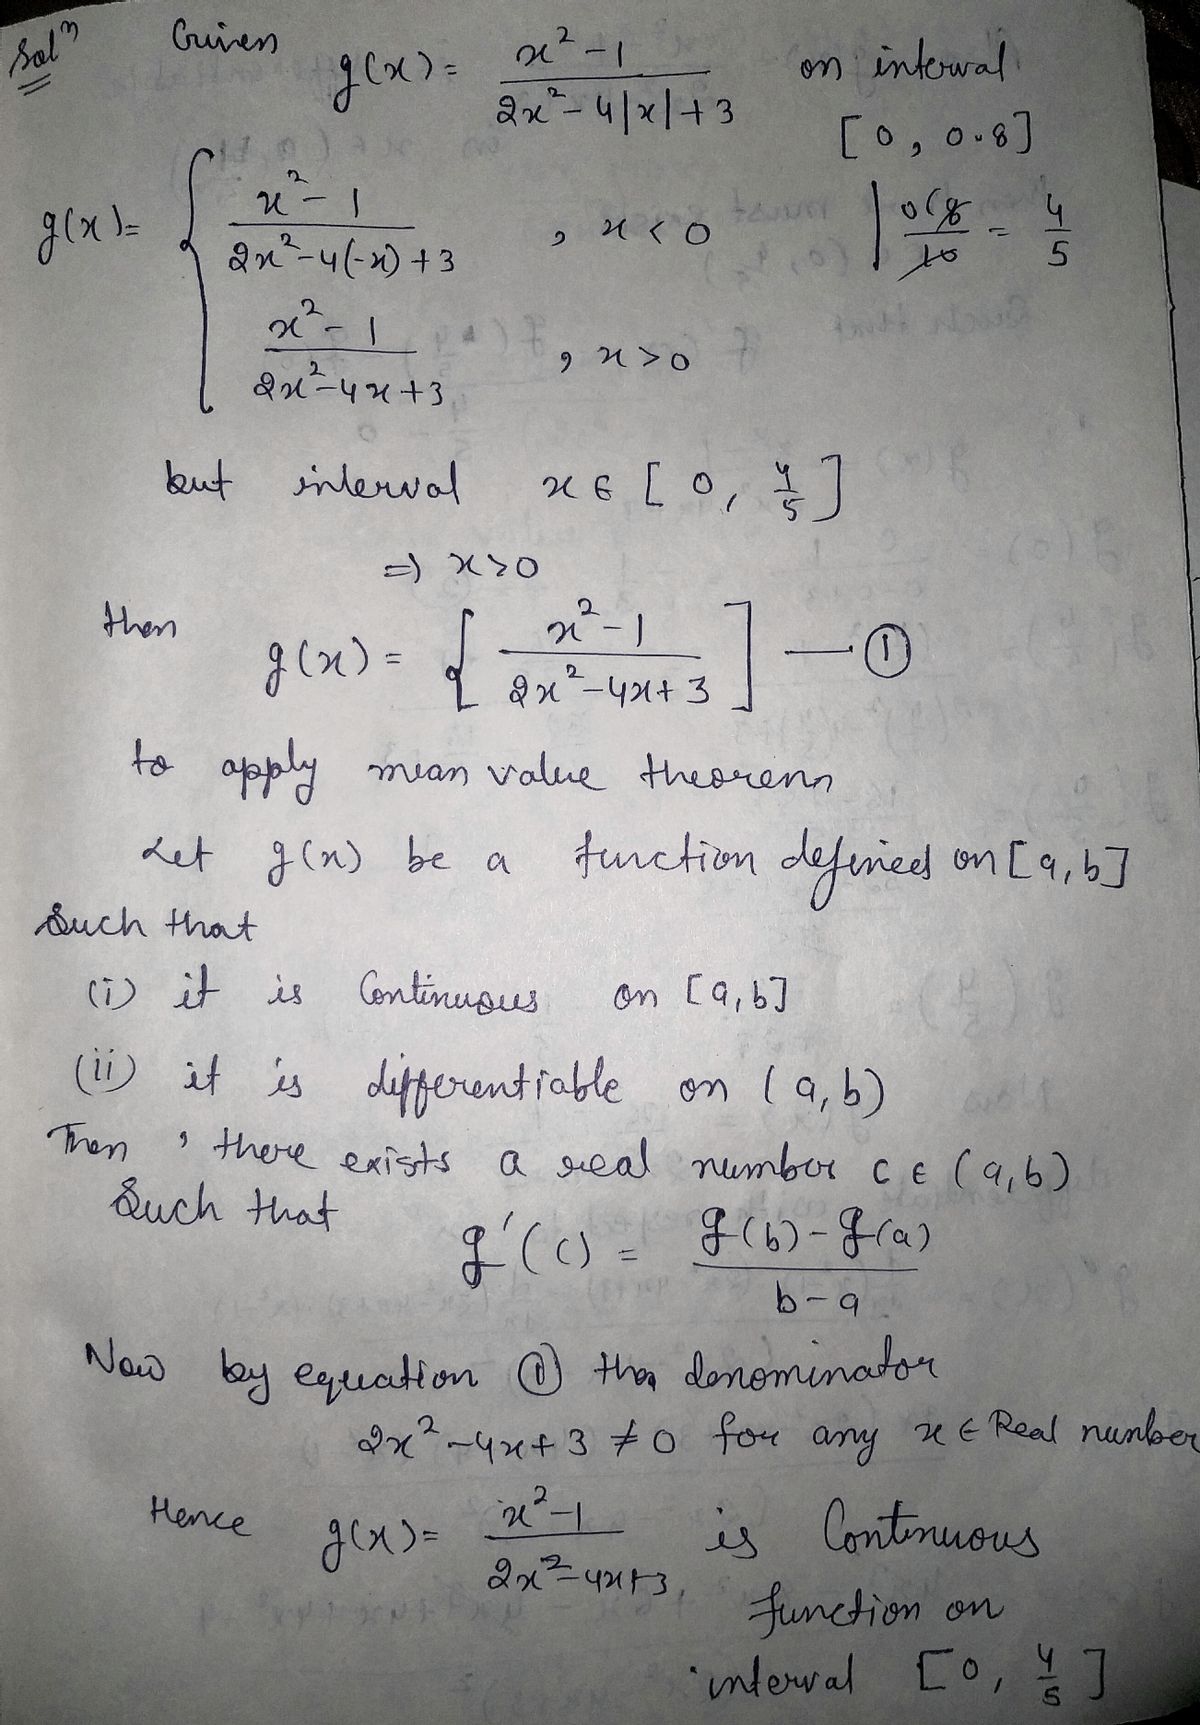 Solⁿ Given g(x) = (x² - 1)/(2x² - 4|x| + 3) on interval
[0, 0.8]
g(x) = { (x² - 1)/(2x² - 4(-x) + 3) , x < 0 | 8/10 = 4/5
(x² - 1)/(2x² - 4x + 3) , x > 0
but interval x ∈ [0, 4/5]
⇒ x > 0
then
g(x) = { (x² - 1)/(2x² - 4x + 3) ] — ①
to apply mean value theorem
Let g(x) be a function defined on [a, b]
Such that
(i) it is Continuous on [a, b]
(ii) it is differentiable on (a, b)
Then , there exists a real number c ∈ (a, b)
Such that
g'(c) = (g(b) - g(a))/(b - a)
Now by equation ① the denominator
2x² - 4x + 3 ≠ 0 for any x ∈ Real number
Hence g(x) = (x² - 1)/(2x² - 4x + 3) is Continuous
function on
interval [0, 4/5]